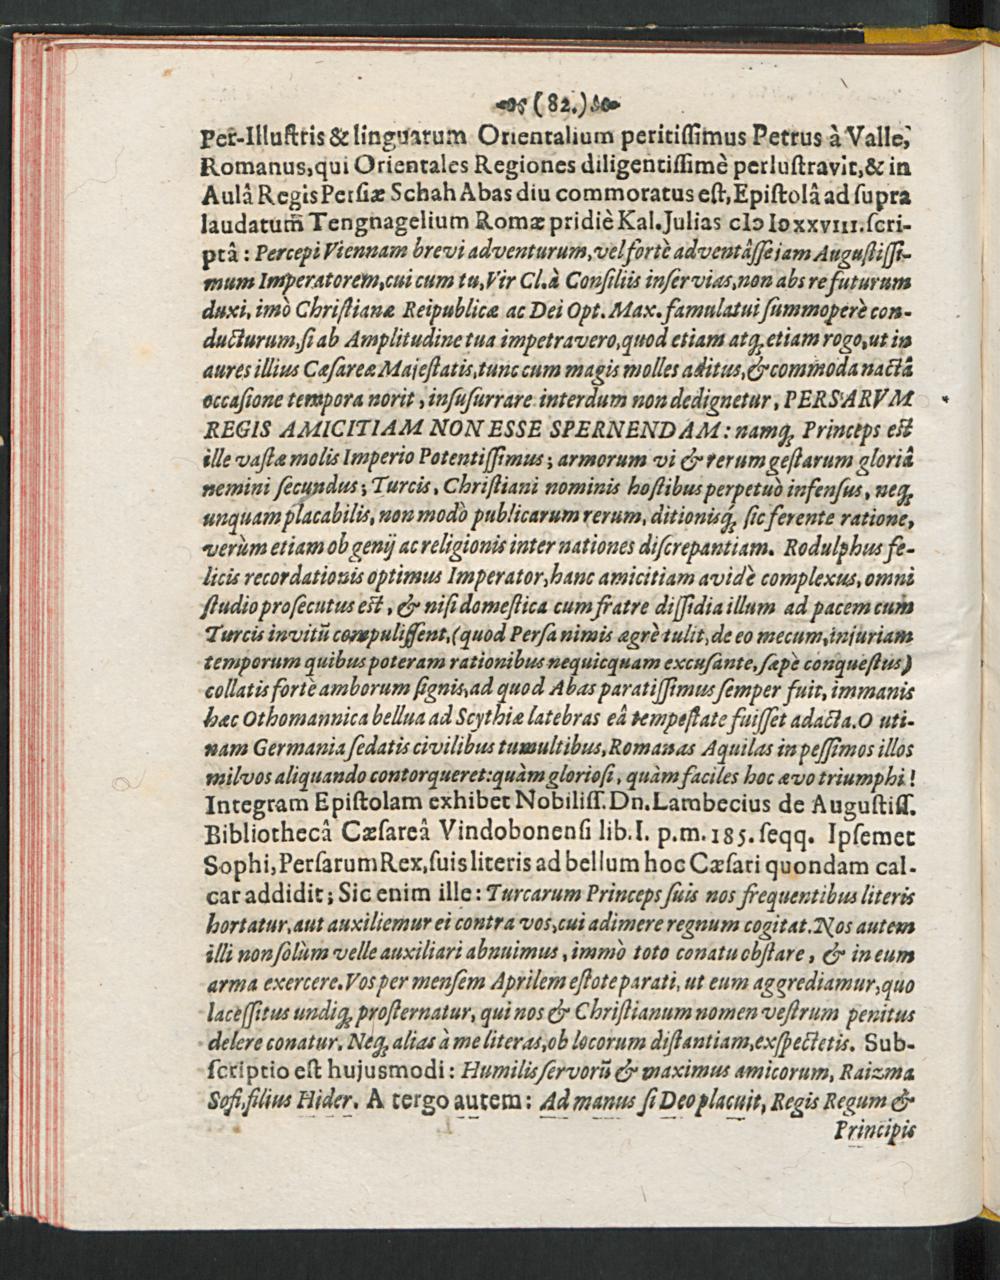 (82.)
Per-Illustris & linguarum Orientalium peritissimus Petrus à Valle,
Romanus, qui Orientales Regiones diligentissimè perlustravit, & in
Aulâ Regis Persiæ Schah Abas diu commoratus est, Epistolâ ad supra
laudatum̃ Tengnagelium Romæ pridiè Kal. Julias cIɔ Iɔxxviii. scri-
ptâ: Percepi Viennam brevi adventurum, vel fortè adventâsse jam Augustissi-
mum Imperatorem, cui cum tu, Vir Cl. à Consiliis inservias, non abs re futurum
duxi, imò Christianæ Reipublicæ ac Dei Opt. Max. famulatui summoperè con-
ducturum, si ab Amplitudine tua impetravero, quod etiam atq; etiam rogo, ut in
aures illius Cæsareæ Majestatis, tunc cum magis molles aditus, & commoda nactâ
occasione tempora norit, insusurrare interdum non dedignetur, PERSARVM
REGIS AMICITIAM NON ESSE SPERNENDAM: namq; Princeps est
ille vastæ molis Imperio Potentissimus; armorum vi & rerum gestarum gloriâ
nemini secundus; Turcis, Christiani nominis hostibus perpetuò infensus, neq;
unquam placabilis, non modò publicarum rerum, ditionisq́; sic ferente ratione,
verùm etiam ob genij ac religionis inter nationes discrepantiam. Rodulphus fe-
licis recordationis optimus Imperator, hanc amicitiam avidè complexus, omni
studio prosecutus est, & nisi domestica cum fratre dissidia illum ad pacem cum
Turcis invitũ compulissent, (quod Persa nimis ægrè tulit, de eo mecum, injuriam
temporum quibus poteram rationibus nequicquam excusante, sæpè conquestus)
collatis fortè amborum signis, ad quod Abas paratissimus semper fuit, immanis
hæc Othomannica bellua ad Scythiæ latebras eâ tempestate fuisset adacta. O uti-
nam Germania sedatis civilibus tumultibus, Romanas Aquilas in pessimos illos
milvos aliquando contorqueret: quàm gloriosi, quàm faciles hoc ævo triumphi!
Integram Epistolam exhibet Nobiliss. Dn. Lambecius de Augustiss.
Bibliothecâ Cæsareâ Vindobonensi lib. I. p. m. 185. seqq. Ipsemet
Sophi, Persarum Rex, suis literis ad bellum hoc Cæsari quondam cal-
car addidit; Sic enim ille: Turcarum Princeps suis nos frequentibus literis
hortatur, aut auxiliemur ei contra vos, cui adimere regnum cogitat. Nos autem
illi non solùm velle auxiliari abnuimus, immò toto conatu obstare, & in eum
arma exercere. Vos per mensem Aprilem estote parati, ut eum aggrediamur, quo
lacessitus undiq; prosternatur, qui nos & Christianum nomen vestrum penitus
delere conatur. Neq; alias à me literas, ob locorum distantiam, exspectetis. Sub-
scriptio est hujusmodi: Humilis servorũ & maximus amicorum, Raizma
Sofi, filius Hider. A tergo autem: Ad manus si Deo placuit, Regis Regum &
Principis